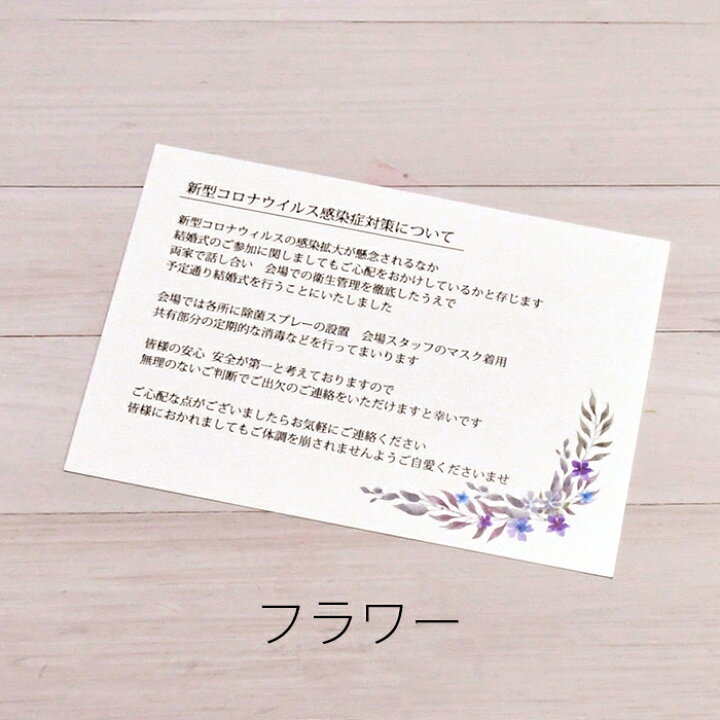 新型コロナウイルス感染症対策について
新型コロナウィルスの感染拡大が懸念されるなか
結婚式のご参加に関しましてもご心配をおかけしているかと存じます
両家で話し合い　会場での衛生管理を徹底したうえで
予定通り結婚式を行うことにいたしました
会場では各所に除菌スプレーの設置　会場スタッフのマスク着用
共有部分の定期的な消毒などを行ってまいります
皆様の安心 安全が第一と考えておりますので
無理のないご判断でご出欠のご連絡をいただけますと幸いです
ご心配な点がございましたらお気軽にご連絡ください
皆様におかれましてもご体調を崩されませんようご自愛くださいませ
フラワー